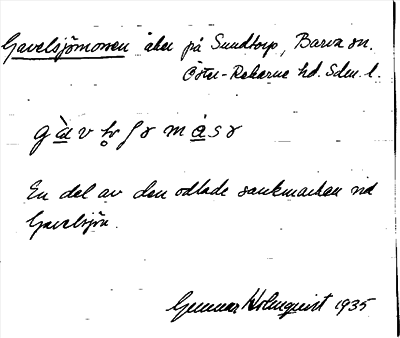 Gavelsjömossen åker på Sundtorp, Barva sn.
Öster-Rekarne hd. Sdm. l.
En del av den odlade sankmarken vid
Gavelsjön.
Gunnar Holmquist 1935